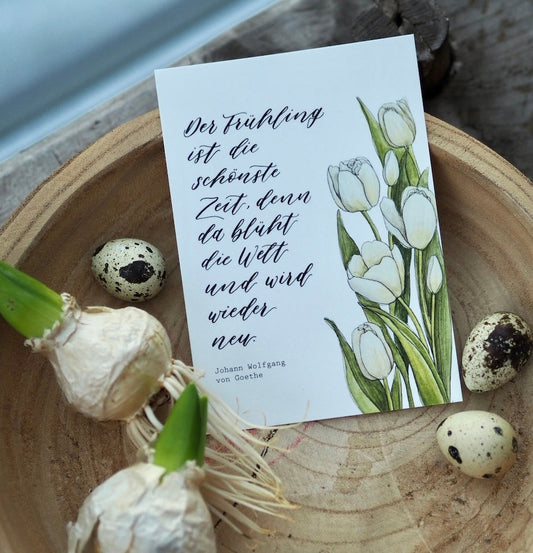 Der Frühling
ist die
schönste
Zeit, denn
da blüht
die Welt
und wird
wieder
neu.
Johann Wolfgang
von Goethe